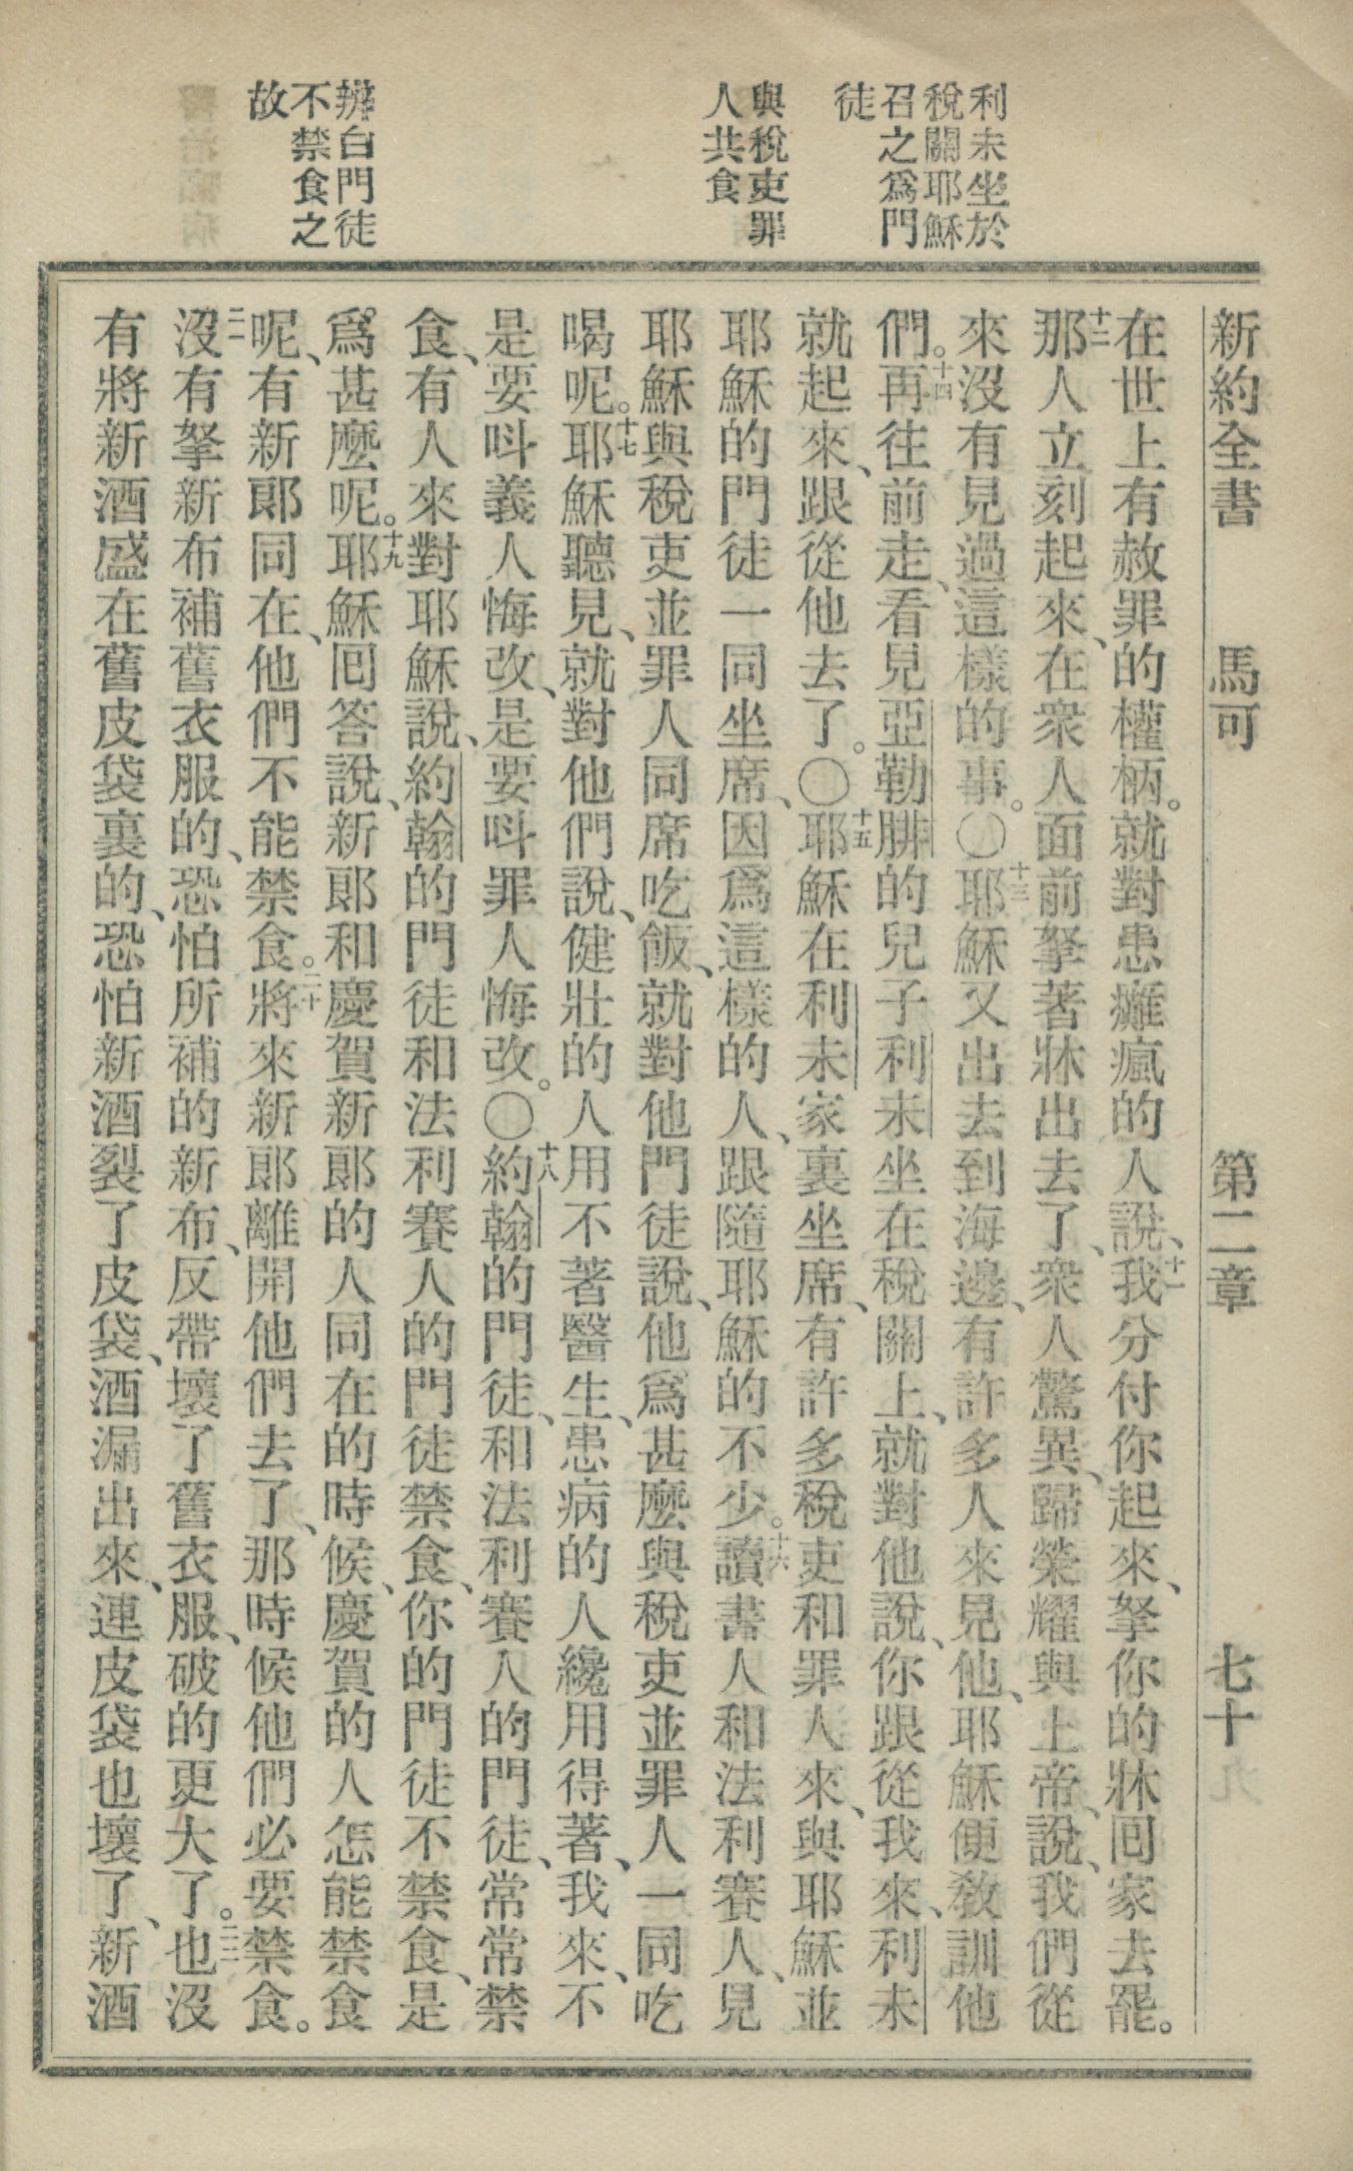 利未坐於
稅關耶穌
召之爲門
徒
與稅吏罪
人共食
辨白門徒
不禁食之
故
新約全書 馬可 第二章 七十
在世上有赦罪的權柄。就對患癱瘋的人說、十一我分付你起來、拏你的牀囘家去罷。
十二那人立刻起來、在衆人面前拏著牀出去了、衆人驚異、歸榮耀與上帝、說、我們從
來沒有見過這樣的事。〇十三耶穌又出去到海邊、有許多人來見他、耶穌便敎訓他
們。十四再往前走、看見亞勒腓的兒子利未坐在稅關上、就對他說、你跟從我來、利未
就起來、跟從他去了。〇十五耶穌在利未家裏坐席、有許多稅吏和罪人來、與耶穌並
耶穌的門徒一同坐席、因爲這樣的人、跟隨耶穌的不少。十六讀書人和法利賽人、見
耶穌與稅吏並罪人同席吃飯、就對他門徒說、他爲甚麼與稅吏並罪人一同吃
喝呢。十七耶穌聽見、就對他們說、健壯的人用不著醫生、患病的人纔用得著、我來、不
是要呌義人悔改、是要呌罪人悔改。〇十八約翰的門徒、和法利賽人的門徒、常常禁
食、有人來對耶穌說、約翰的門徒和法利賽人的門徒禁食、你的門徒不禁食、是
爲甚麼呢。十九耶穌囘答說、新郞和慶賀新郞的人同在的時候、慶賀的人怎能禁食
呢、有新郞同在、他們不能禁食。二十將來新郞離開他們去了、那時候他們必要禁食。
二一沒有拏新布補舊衣服的、恐怕所補的新布、反帶壞了舊衣服、破的更大了。二二也沒
有將新酒盛在舊皮袋裏的、恐怕新酒裂了皮袋、酒漏出來、連皮袋也壞了、新酒